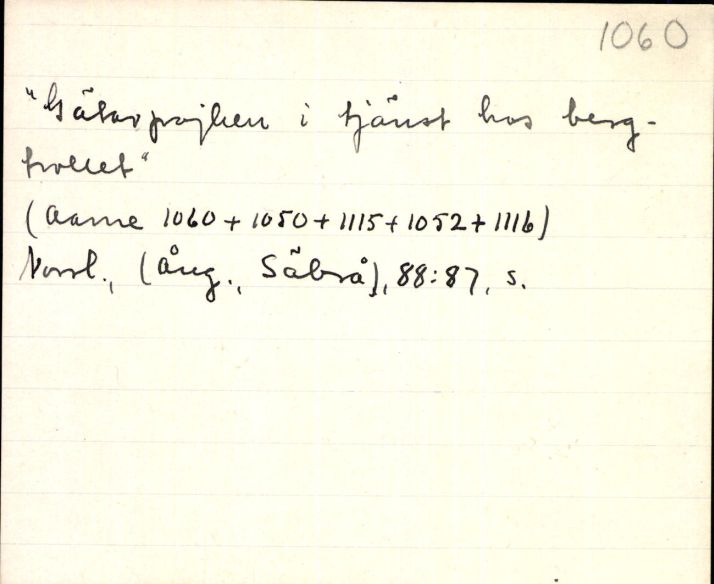 1060
"Gätarpojken i tjänst hos berg-
trollet"
(Aarne 1060 + 1050 + 1115 + 1052 + 1116)
Norrl., (Ång., Säbrå), 88:87, s.